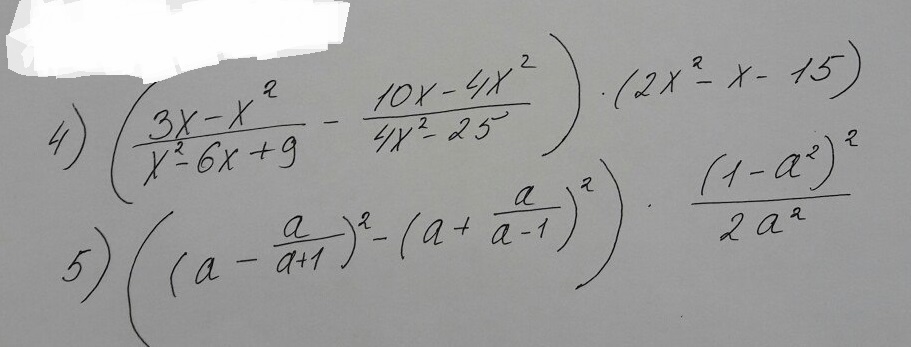 4) ( (3x - x²)/(x² - 6x + 9) - (10x - 4x²)/(4x² - 25) ) · (2x² - x - 15)
5) ( (a - a/(a+1))² - (a + a/(a-1))² ) · (1 - a²)²/(2a²)